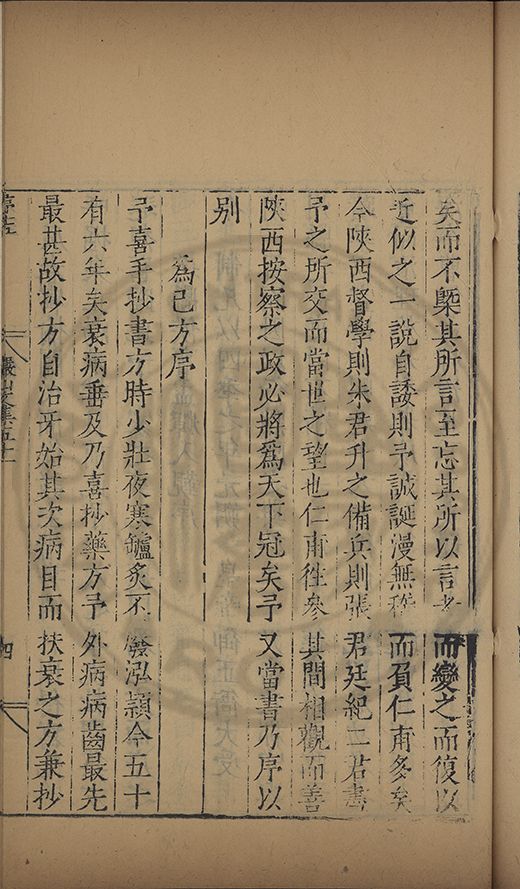 矣而不槩其所言至忘其所以言者而變之而復以
近似之一說自諉則予誠誕漫無稽而負仁甫多矣
今陝西督學則朱君升之備兵則張君廷紀二君書
予之所交而當世之望也仁甫徃參其間相觀而善
陝西按察之政必將爲天下冠矣予又當書乃序以
别
爲已方序
予喜手抄書方時少壯夜寒鑪炙不廢泓穎今五十
有六年矣衰病垂及乃喜抄藥方予外病病齒最先
最甚故抄方自治牙始其次病目而扶衰之方兼抄
四